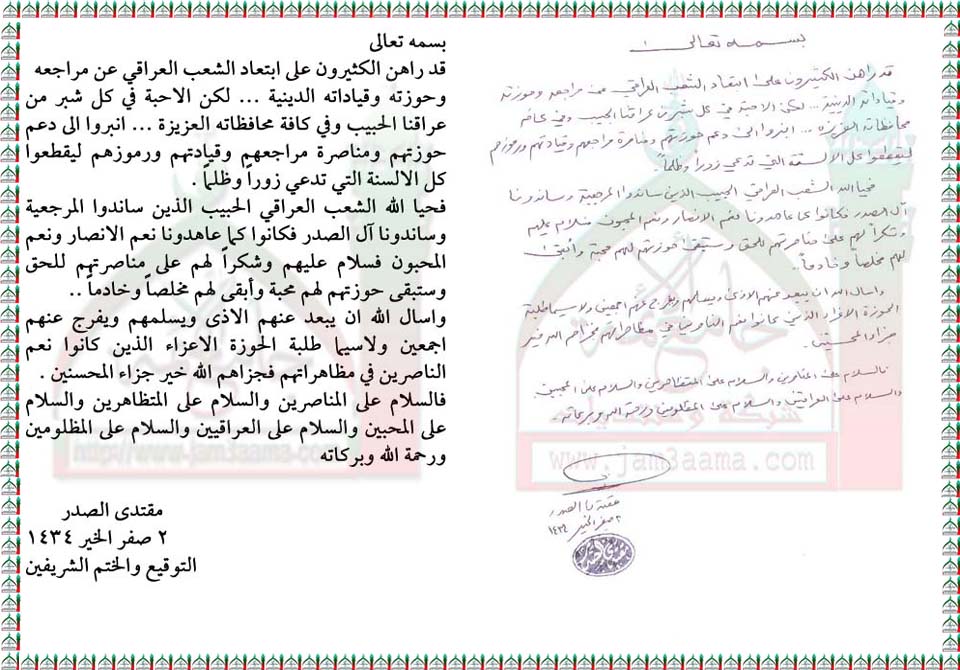 بسمه تعالى
قد راهن الكثيرون على ابتعاد الشعب العراقي عن مراجعه وحوزته
وقياداته الدينية ... لكن الاحبة في كل شبر من عراقنا الحبيب وفي كافة
محافظاته العزيزة ... انبروا الى دعم حوزتهم ومناصرة مراجعهم وقيادتهم ورموزهم
ليقطعوا كل الالسنة التي تدعي زوراً وظلماً.
فحيا الله الشعب العراقي الحبيب الذين ساندوا المرجعية وساندونا
آل الصدر فكانوا كما عاهدونا فنعم الانصار ونعم المحبون فسلام عليهم
وشكراً لهم على مناصرتهم للحق وستبقى حوزتهم لهم محبة وأبقى
لهم مخلصاً وخادماً..
واسال الله ان يبعد عنهم الاذى ويسلمهم ويفرج عنهم اجمعين ولاسيما طلبة
الحوزة الاعزاء الذين كانوا نعم الناصرين في مظاهراتهم فجزاهم الله خير
جزاء المحسنين.
فالسلام على المناصرين والسلام على المتظاهرين والسلام على المحبين
والسلام على العراقيين والسلام على المظلومين ورحمة الله وبركاته
www.jam3aama.com
مقتدى الصدر
٢ صفر الخير ١٤٣٤
بسمه تعالى
قد راهن الكثيرون على ابتعاد الشعب العراقي عن مراجعه
وحوزته وقياداته الدينية ... لكن الاحبة في كل شبر من
عراقنا الحبيب وفي كافة محافظاته العزيزة ... انبروا الى دعم
حوزتهم ومناصرة مراجعهم وقيادتهم ورموزهم ليقطعوا
كل الالسنة التي تدعي زوراً وظلماً .
فحيا الله الشعب العراقي الحبيب الذين ساندوا المرجعية
وساندونا آل الصدر فكانوا كما عاهدونا نعم الانصار ونعم
المحبون فسلام عليهم وشكراً لهم على مناصرتهم للحق
وستبقى حوزتهم لهم محبة وأبقى لهم مخلصاً وخادماً ..
واسال الله ان يبعد عنهم الاذى ويسلمهم ويفرج عنهم
اجمعين ولاسيما طلبة الحوزة الاعزاء الذين كانوا نعم
الناصرين في مظاهراتهم فجزاهم الله خير جزاء المحسنين .
فالسلام على المناصرين والسلام على المتظاهرين والسلام
على المحبين والسلام على العراقيين والسلام على المظلومين
ورحمة الله وبركاته
http://www.jam3aama
مقتدى الصدر
٢ صفر الخير ١٤٣٤
التوقيع والختم الشريفين